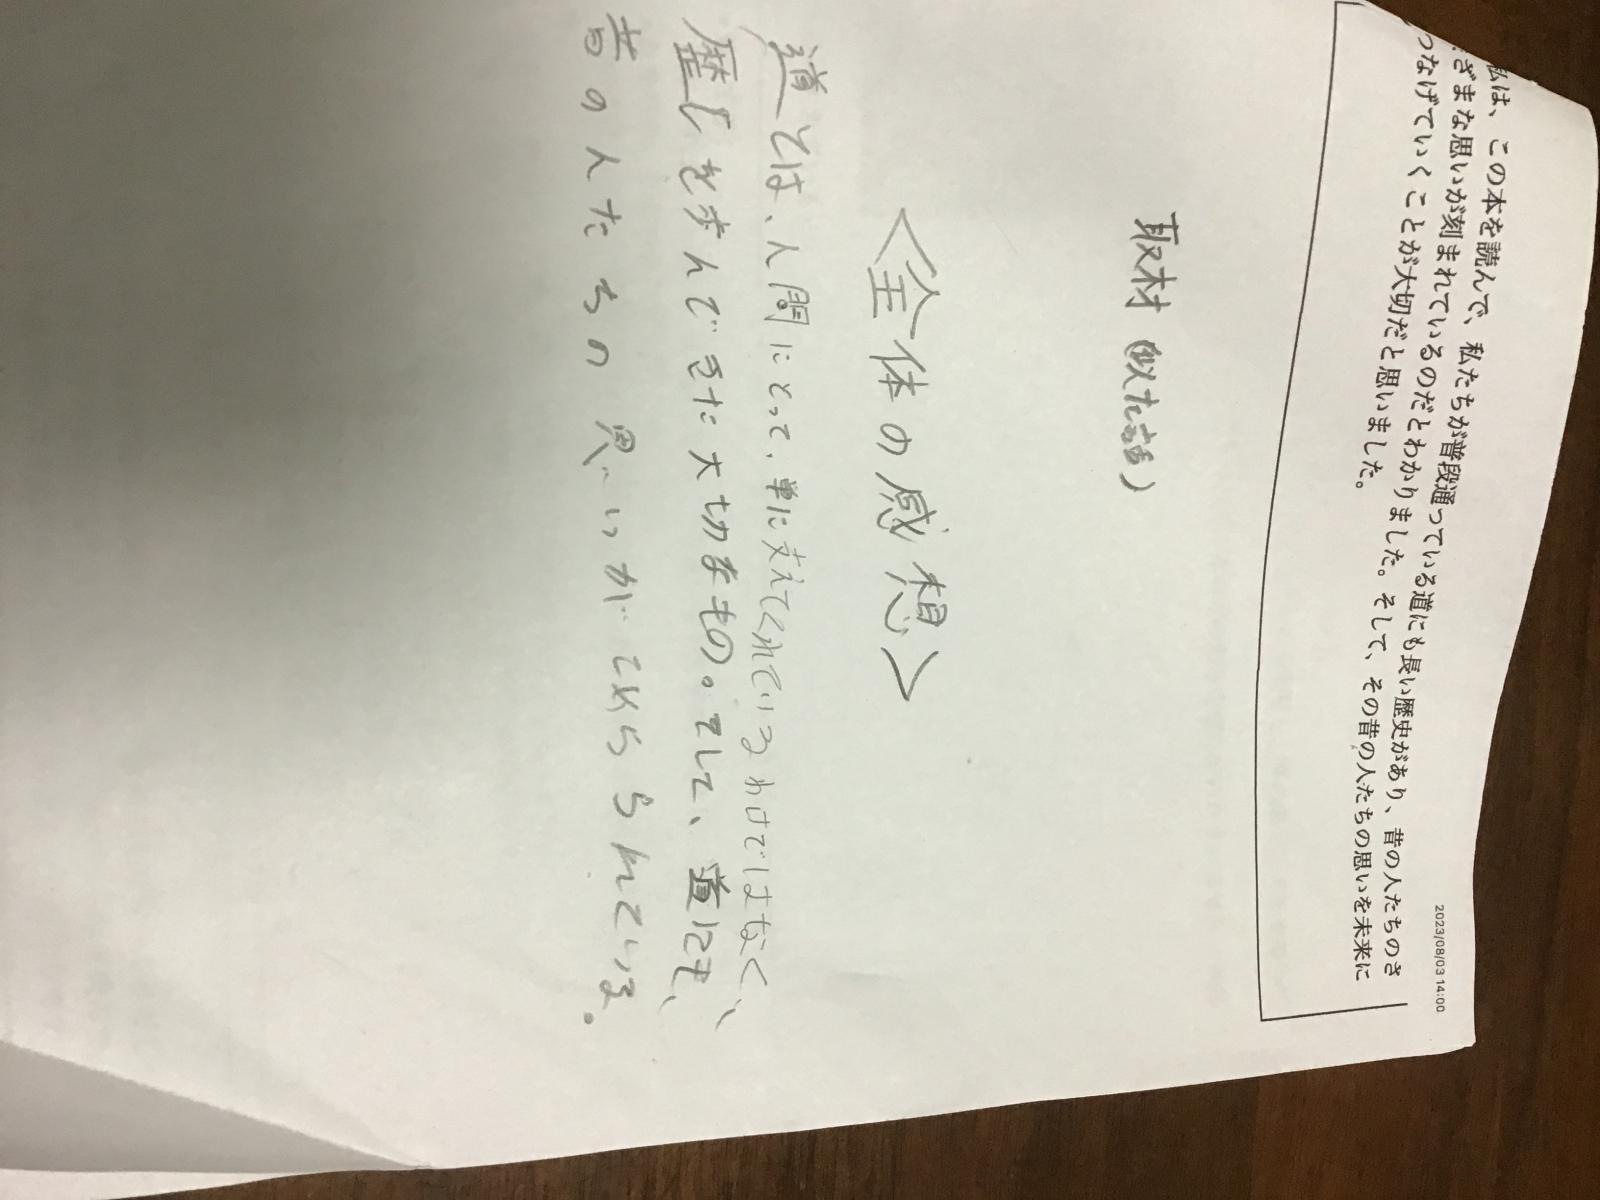 2023/08/03 14:00
私は、この本を読んで、私たちが普段通っている道にも長い歴史があり、昔の人たちのさ
まざまな思いが刻まれているのだとわかりました。そして、その昔の人たちの思いを未来に
つなげていくことが大切だと思いました。
取材（似た話）
＜全体の感想＞
道とは、人間にとって、単に支えてくれているわけではなく、
歴史を歩んできた大切なもの。そして、道にも、
昔の人たちの思いがこめられている。